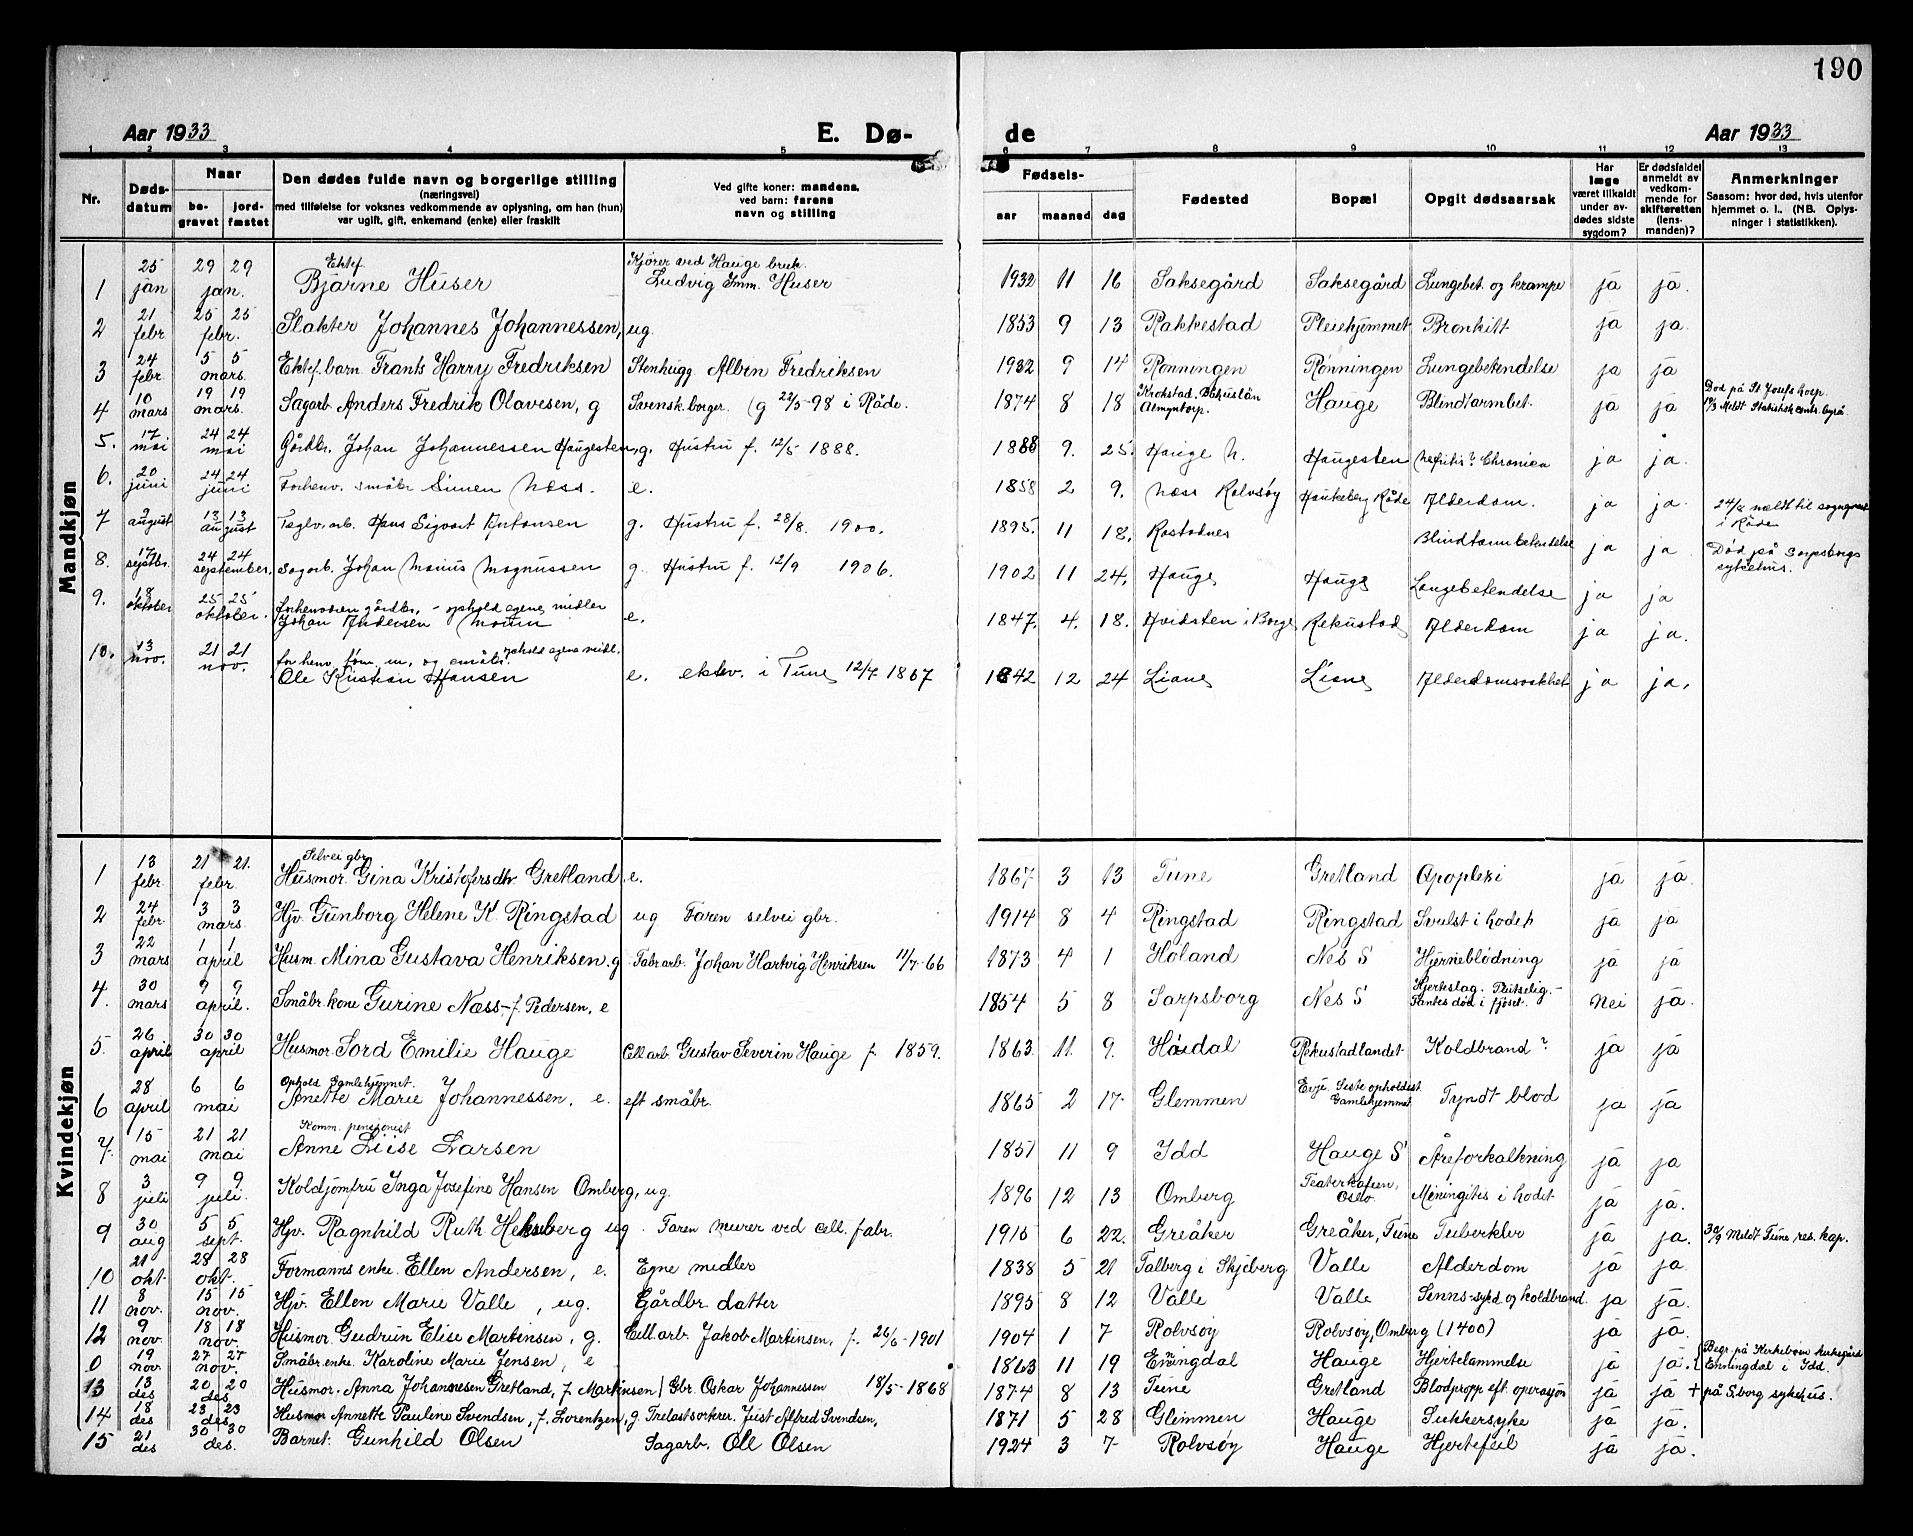 190
Aar 1933 E. Dø- de Aar 1933
1 2 3 4 5 6 7 8 9 10 11 12 13
Nr. Døds-datum Naar be-gravet jord-fæstet Den dødes fulde navn og borgerlige stilling (næringsvei) med tilføielse for voksnes vedkommende av oplysning, om han (hun) var ugift, gift, enkemand (enke) eller fraskilt Ved gifte koner: mandens, ved barn: farens navn og stilling Fødsels- aar maaned dag Fødested Bopæl Opgit dødsaarsak Har læge været tilkaldt under av-dødes sidste sygdom? Er dødsfaldet anmeldt av vedkom-mende for skifteretten (lens-manden)? Anmerkninger Saasom: hvor død, hvis utenfor hjemmet o. l., (NB. Oplys-ninger i statistikken).
Mandkjøn
1 25 jan 29 29 jan. Ektef. Bjarne Huser Kjører ved Hauge bruk. Ludvig Imm. Huser 1932 11 16 Saksegård Saksegård Lungebet. og krampe ja ja.
2 21 febr 25 25 febr. Slakter Johannes Johannessen, ug. 1853 9 13 Rakkestad Pleiehjemmet Bronkitt ja ja.
3 24 febr. 5 5 mars. Ektef. barn Frants Harry Fredriksen Stenhugg. Albin Fredriksen 1932 9 14 Rønningen Rønningen Lungebetendelse ja ja
4 10 mars 19 19 mars. Sagarb. Anders Fredrik Olavesen, g Svensk borger. (g 22/5-98 i Råde. 1874 8 18 Krokstad. Bohuslän Hauge Blindtarmbet. ja ja Død på St. Josefs hosp. 14/3 Meldt Statistisk centr. byrå.
5. 17 mai 24 24 mai Gårdbr. Johan Johannessen Haugesten, g. Hustru f. 12/5 1888. 1888 9. 25. Hauge N. Haugesten Nefritis? Chronica ja ja.
6. 20 juni 24 24 juni Forhenv. småbr. Simen Næss. e. 1858 2 9. Næss Rolvsøy Haukeberg Råde Alderdom. ja ja. 24/8 meldt til sogneprest i Råde
7 9 august 13 13 august Teglv.arb. Hans Sigvart Antonsen g. Hustru f. 28/8. 1900. 1895. 11 18. Rostadnes Blindtarmbetendelse ja ja Død på Sarpsborgs sykehus.
8. 17 septbr. 24 24 september. Sagarb. Johan Marius Magnussen g. Hustru f. 12/9 1906. 1902 11 24. Hauge Hauge Lungebetendelse ja ja
9. 18 oktober 25 25 oktober. forhenværen gårdbr. - ophold egene midler Johan Andersen Moum e. 1847. 4. 18. Hvidsten i Borge Rekustad Alderdom ja ja.
10. 13 nov. 21 21 nov. forhenv. tøm. m. og småbr. ophold egene midl. Ole Kristian Hansen e. ektev. i Tune 12/4 1867 1842 12 24 Liane Liane Alderdomssvakhet ja ja.
Kvindekjøn
1 13 febr. 21 21. febr. Selvei gbr. Husmor. Gina Kristofersdtr. Gretland. e. 1867 3 13 Tune Gretland Apoplexi ja ja.
2 24 febr 3 3 mars. Hjv. Gunborg Helene K. Ringstad ug Faren selvei gbr. 1914 8 4 Ringstad Ringstad Svulst i hodet ja ja
3 22 mars 1 1 april Husm. Mina Gustava Henriksen, g. Fabr.arb. Johan Hartvig Henriksen 11/7-66 1873 4 1 Høland Nes S Hjerneblødning ja ja
4. 30 mars 9 9 april. Småbr. kone Gurine Næss - f. Pedersen, e 1854 5 8 Sarpsborg Nes S Hjerteslag. Plutselig. - Fantes død i fjøset. Nei ja.
5. 26 april 30 30 april Husmor. Sord Emilie Hauge Cell.arb. Gustav Severin Hauge f. 1859. 1863. 11. 9. Hårdal Rekustadlandet Koldbrand? ja ja
6 28 april 6 6 mai Ophold Gamlehjemmet. Anette Marie Johannessen. e. eft småbr. 1865 2 17. Glemmen Evje. Siste opholdsst. Gamlehjemmet Tyndt blod ja ja
7. 15 mai 21 21 mai Komm. pensjonist Anne Liise Larsen 1851 11 9 Idd Hauge S Åreforkalkning ja ja
8 3 juli 9 9 juli. Koldjomfru Inga Josefine Hansen Omberg, ug. 1896 12 13 Omberg Teaterkafeen, Oslo. Meningitis i hodet ja ja.
9 30 aug 5 5 sept. Hjv. Ragnhild Ruth Heksberg ug. Faren murer ved cell. fabr. 1915 6 22. Greåker Greåker, Tune Tuberkler ja ja. 30/9 Meldt Tune res. kap.
10 21 okt 28 28 okt. Formanns enke. Ellen Andersen, e. Egne midler 1838 5 21 Talberg i Skjeberg Valle Alderdom ja ja.
11 8 nov. 15 15 nov. Hjv. Ellen Marie Valle, ug. Gårdbr. datter 1895 8 12 Valle Valle Sinns-syk og koldbrand. ja ja.
12 9 nov 18 18 nov. Husmor. Gudrun Elise Martinsen, g. Cell.arb. Jakob Martinsen, f. 26/6-1901 1904 1 7 Rolvsøy Rolvsøy, Omberg (1400) ja ja.
0 19 nov 27 27 nov. Småbr. enke. Karoline Marie Jensen, e 1863 11 19 Enningdal Hauge Hjertelammelse ja ja. Begr. på Kirkebøen kirkegård Enningdal i Idd.
13 13 des 20 20 des. Husmor. Anna Johannesen Gretland, f. Martinsen Gbr. Oskar Johannessen 18/5-1868 1874 8 13 Tune Gretland Blodpropp eft. operasjon ja ja + på S.borg sykehus.
14 18 des 23 23 des. Husmor Annette Pauline Svendsen, f. Lorentzen, g. Trelastsorterer. Just Alfred Svendsen, 1871 5 28 Glemmen Hauge Sukkersyke ja ja.
15 21 des 30 30 des. Barnet. Gunhild Olsen Sagarb. Ole Olsen 1924 3 7. Rolvsøy Hauge Hjertefeil ja ja.